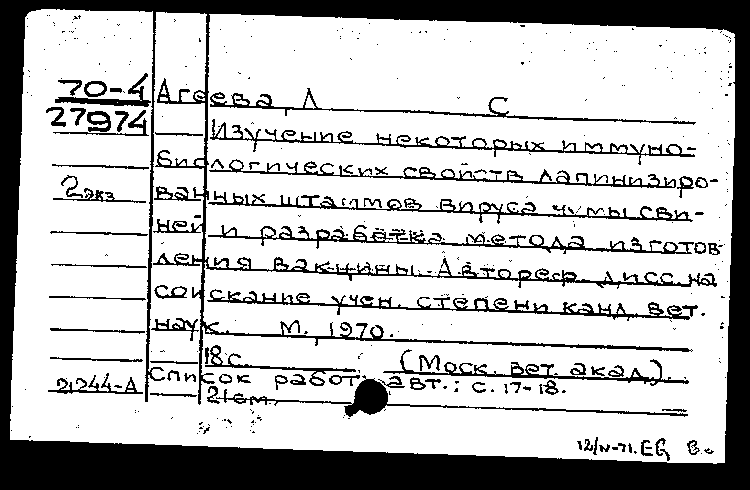 70-4 Агеева, Л С
27974 Изучение некоторых иммуно-
биологических свойств лапинизиро-
2 экз ванных штаммов вируса чумы сви-
ней и разработка метода изготов
ления вакцины. Автореф. дисс. на
соискание учен. степени канд. вет.
наук. М., 1970.
18 с. (Моск. вет. акад.).
21244-А Список работ авт.: с. 17-18.
21 см.
12/IV-71.